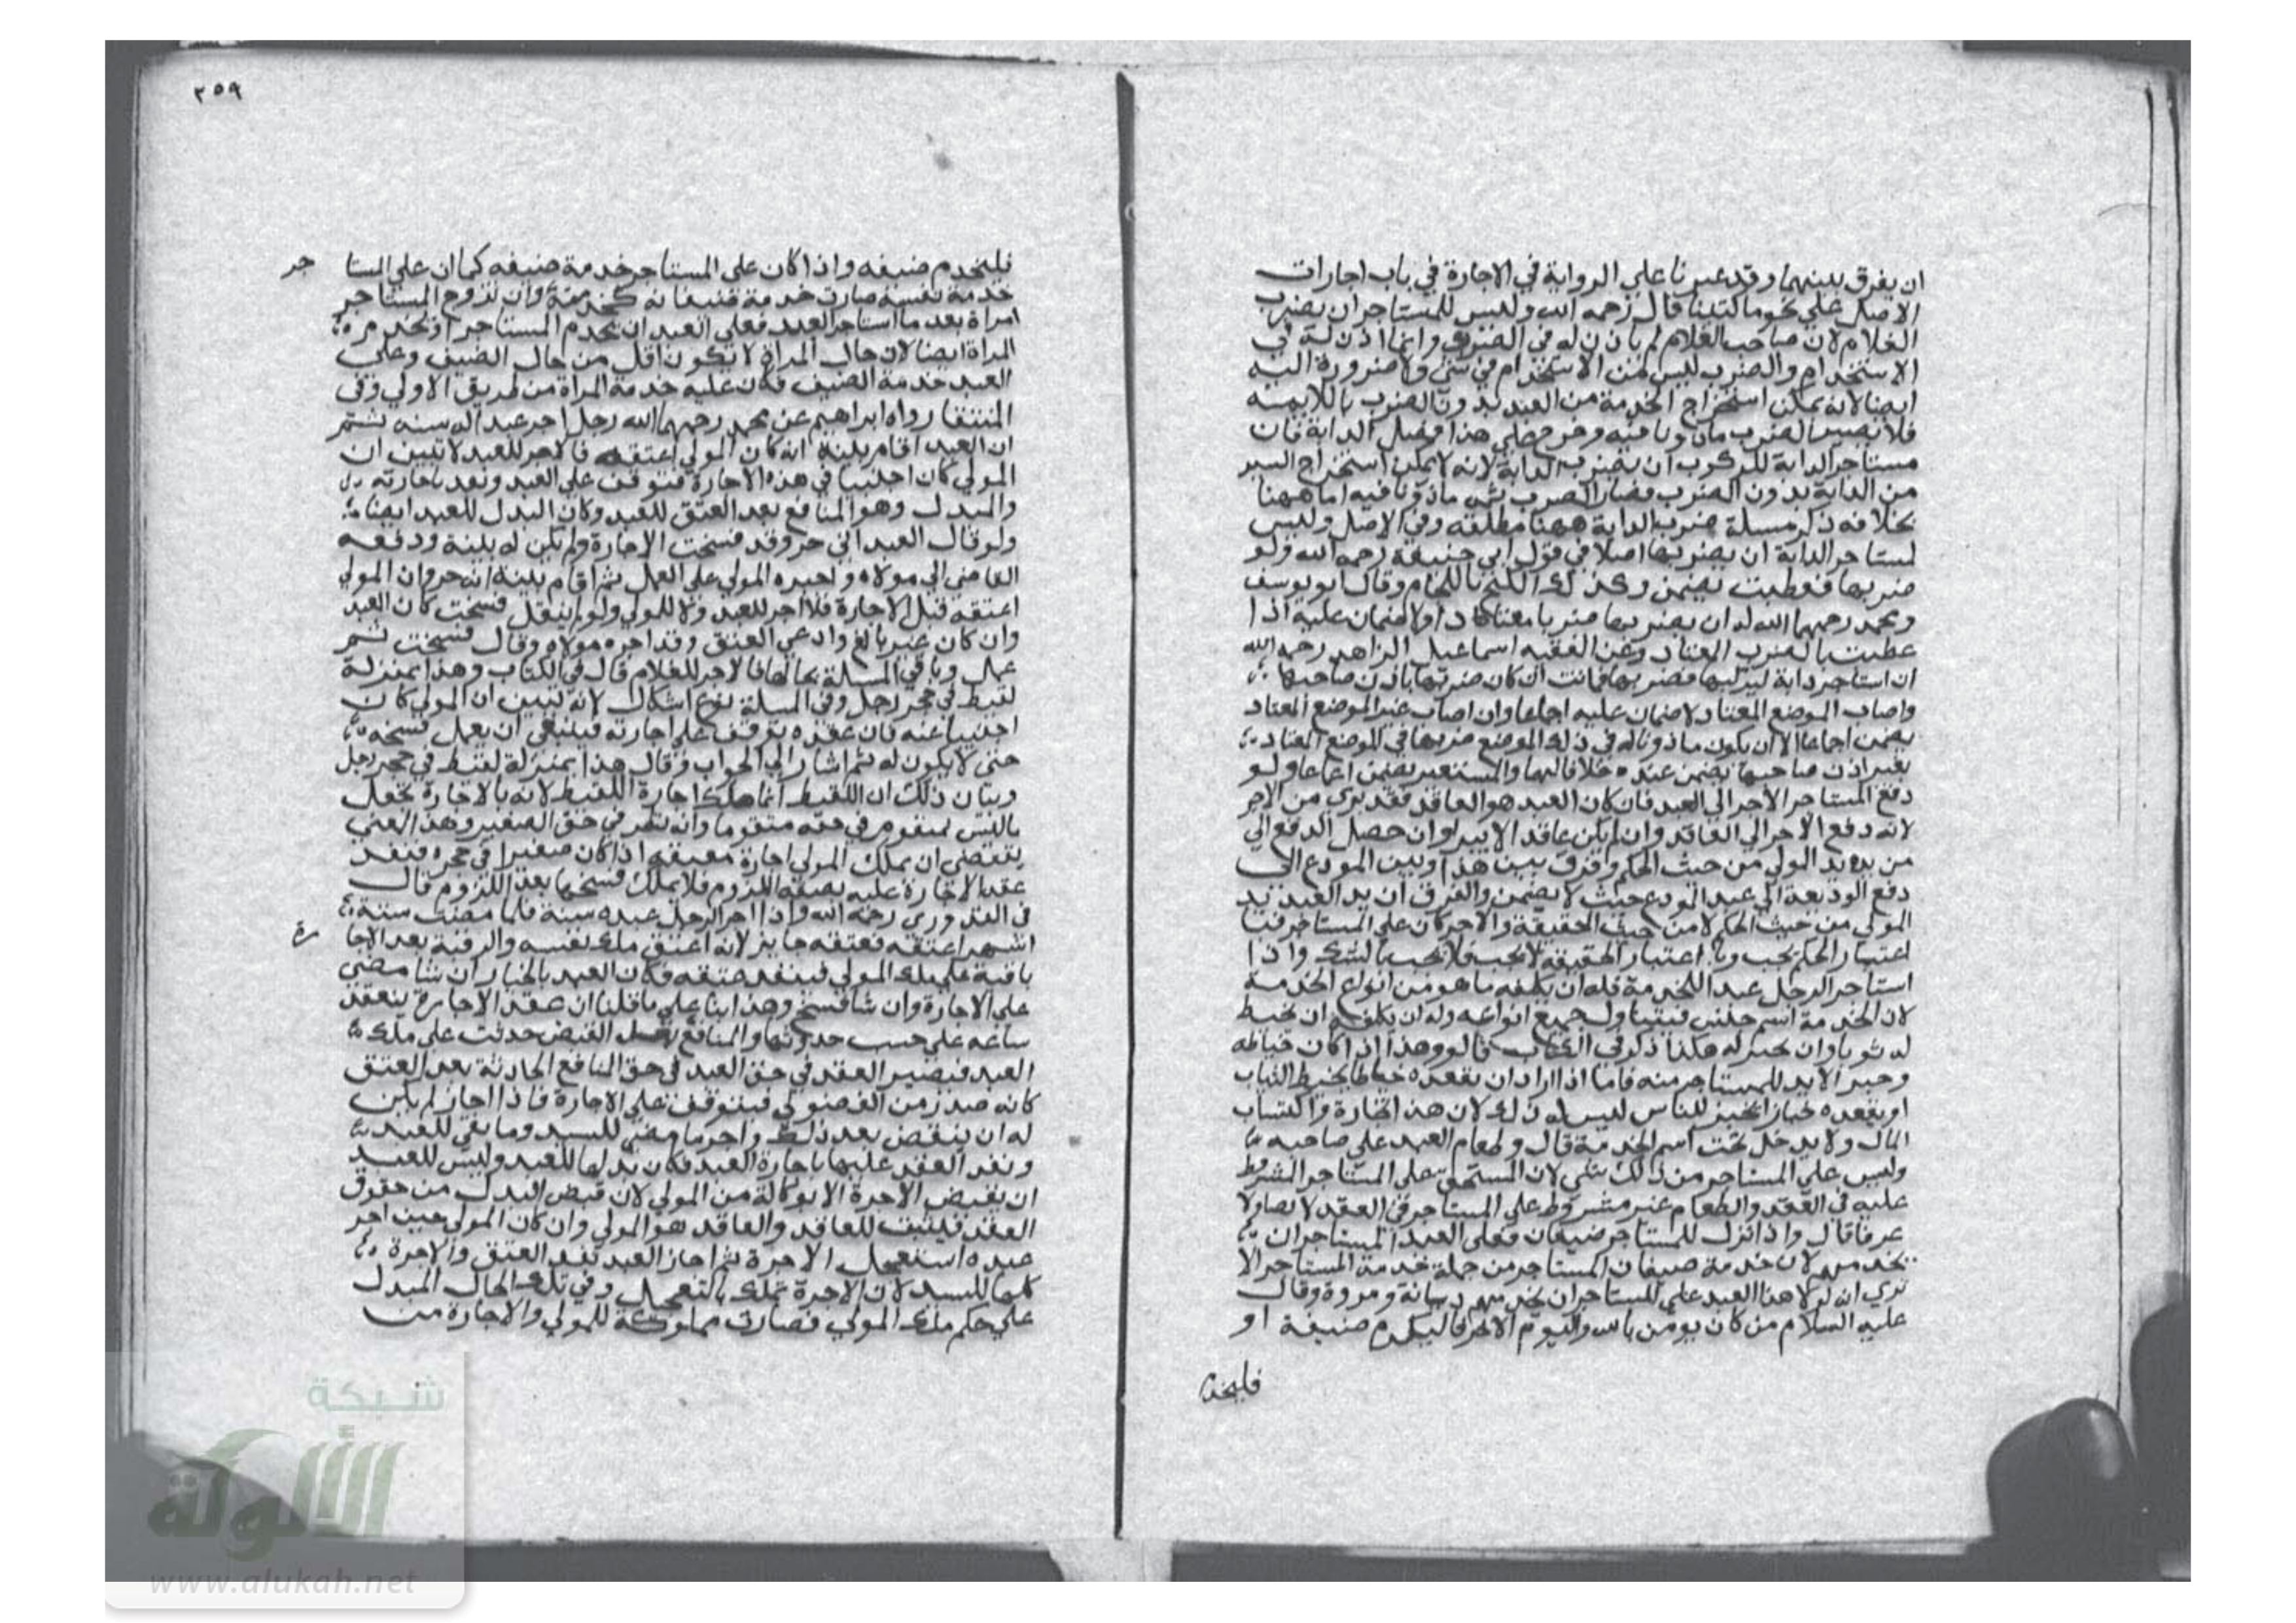 ان يفرق بينهما وقد عبرنا على الرواية في الاجارة في باب اجارات
الاصل على نحو ما كتبنا قال رحمه الله وليس للمستاجر ان يضرب
الغلام لان صاحب الغلام لم ياذن له في الضرب وانما اذن له في
الاستخدام والضرب ليس من الاستخدام في شي ولا ضرورة اليه
ايضا لانه يمكن استخراج الخدمة من العبد بدون الضرب باللايمه
فلا يصير الضرب ماذونا فيه وخرج على هذا فصل الدابة فان
مستاجر الدابة للركوب ان يضرب الدابة لانه لا يمكن استخراج السير
من الدابة بدون الضرب فصار الضرب ثم ماذونا فيه اما ههنا
بخلافه ذكر مسلة ضرب الدابة ههنا مطلقه وفي الاصل وليس
لمستاجر الدابة ان يضربها اصلا في قول ابي حنيفة رحمه الله ولو
ضربها فعطبت يضمن وكذلك الكبح باللجام وقال ابو يوسف
ومحمد رحمهما الله له ان يضربها ضربا معتادا ولا ضمان عليه اذا
عطبت بالضرب المعتاد وعن الفقيه اسماعيل الزاهد رحمه الله
ان استاجر دابة ليركبها فضربها فماتت ان كان ضربها باذن صاحبها
واصاب الموضع المعتاد لا ضمان عليه اجماعا وان اصاب غير الموضع المعتاد
يضمن اجماعا الا ان يكون ماذونا له في ذلك الموضع ضربها في الموضع المعتاد
بغير اذن صاحبها يضمن عنده خلافا لهما والمستعير يضمن اجماعا ولو
دفع المستاجر الاجر الى العبد فان كان العبد هو العاقد فقد بري من الاجر
لانه دفع الاجر الى العاقد وان لم يكن عاقدا لا يبرا وان حصل الدفع الى
من يده يد المولى من حيث الحكم وفرق بين هذا وبين المودع اذا
دفع الوديعة الى عبد المودع حيث لا يضمن والفرق ان يد العبد يد
المولى من حيث الحكم لا من حيث الحقيقة والاجر كان على المستاجر
اعتبار الحكم يجب اعتبار الحقيقة لا يجب فلا يجب بالشك واذا
استاجر الرجل عبدا للخدمة فله ان يكلفه ما هو من انواع الخدمة
لان الخدمة اسم جنس فيتناول جميع انواعه وله ان يكلفه ان يخيط
له ثوبا وان يخبز له هكذا ذكر في الكتاب قالوا وهذا اذا كان خياطه
وخبز الابد للمستاجر منه فاما اذا اراد ان يقعده خياطا يخيط الثياب
او يقعده خبازا يخبز للناس ليس له ذلك لان هذا تجارة واكتساب
المال ولا يدخل تحت اسم الخدمة قال وطعام العبد على صاحبه
وليس على المستاجر من ذلك شي لان المستحق على المستاجر المشروط
عليه في العقد والطعام غير مشروط على المستاجر في العقد لا نصا ولا
عرفا قال واذا نزل للمستاجر ضيفان فعلى العبد المستاجر ان
يخدمهم لان خدمة ضيفان المستاجر من جملة خدمة المستاجر الا
ترى انه لولا هذا العبد على المستاجر ان يخدمهم ديانة ومروة وقال
عليه السلام من كان يومن بالله واليوم الاخر فاليكرم ضيفه او
فليخد
٢٥٩
فليخدم ضيفه واذا كان على المستاجر خدمة ضيفه كما ان على المستا جر
خدمة نفسه صارت خدمة ضيفانه كخدمته وان تزوج المستاجر
امراة بعد ما استاجر العبد فعلى العبد ان يخدم المستاجر
المراة ايضا لان حال المراة لا يكون اقل من حال الضيف وعلى
العبد خدمة الضيف فكان عليه خدمة المراة من طريق الاولى وفي
المنتقا رواه ابراهيم عن محمد رحمهما الله رجل اجر عبدا له سنه ثم
ان العبد اقام بينة انه كان المولى اعتقه فالاجر للعبد لا تبين ان
المولى كان اجنبيا في هذه الاجارة فتوقف على العبد ونفد باجارته
والمبدل وهو المنافع بعد العتق للعبد وكان البدل للعبد ايضا
ولو قال العبد اني حر وقد فسخت الاجارة ولم يكن له بينة ودفعه
القاضي الى مولاه واجبره المولى على العمل ثم اقام بينة انه حر وان المولى
اعتقه قبل الاجارة فلا اجر للعبد ولا للمولى ولو لم يقل فسخت كان العبد
وان كان غير بالغ وادعى العتق وقد اجره مولاه وقال فسخت ثم
عمل وباقي المسلة بحالها فالاجر للغلام قال في الكتاب وهذا بمنزلة
لقيط في حجر رجل وفي المسلة نوع اشكال لانه تبين ان المولى كان
اجنبيا عنه فان عقده توقف على اجارته فينبغي ان يعمل فسخه
حتى لا يكون له ثم اشار الى الجواب وقال هذا بمنزلة لقيط في حجر رجل
وبيان ذلك ان اللقيط انما ملك اجارة اللقيط لانه بالاجارة يجعل
ماليس بمتقوم في حقه متقوما وانه نظر في حق الصغير وهذا المعنى
يقتضي ان يملك المولى اجارة معتقه اذا كان صغيرا في حجره فينفد
عقد الاجارة عليه بصفة اللزوم فلا يملك فسخها بعد اللزوم قال
في القدوري رحمه الله واذا اجر الرجل عبده سنة فلما مضت ستة
اشهر اعتقه فعتقه جايز لانه اعتق ملك نفسه والرقبة بعد الاجا رة
باقية على ملك المولى فينفد عتقه فكان العبد بالخيار ان شا مضى
على الاجارة وان شا فسخ وهذا بنا على ما قلنا ان عقد الاجارة ينعقد
ساعه على حسب حدوثها والمنافع حدثت على ملك
العبد فيصير العقد في حق العبد في حق المنافع الحادثة بعد العتق
كانه صدر من الفضولي فيتوقف على الاجارة فاذا اجاز لم يكن
له ان ينقض بعد ذلك واجر ما مضى للسيد وما بقي للعبد
ونفد العقد عليها باجارة العبد فكان بدلها للعبد وليس للعبد
ان يقبض الاجرة الا بوكالة من المولى لان قبض البدل من حقوق
العقد فيثبت للعاقد والعاقد هو المولى وان كان المولى حين اجر
عبده استعجل الاجرة ثم اجاز العبد بعد العتق والاجرة
كلها للسيد لان الاجرة تملك بالتعجيل وفي تلك الحال المبدل
على حكم ملك المولى فصارت مملوكة للمولى والاجارة من
شبكة
الألوكة
www.alukah.net